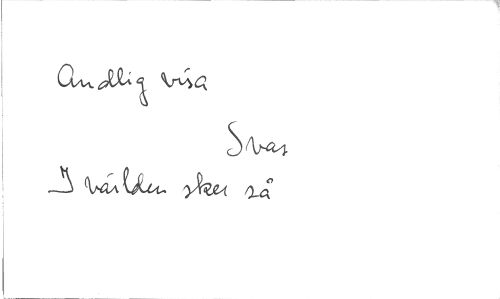 Andlig visa
Svar
I världen sker så